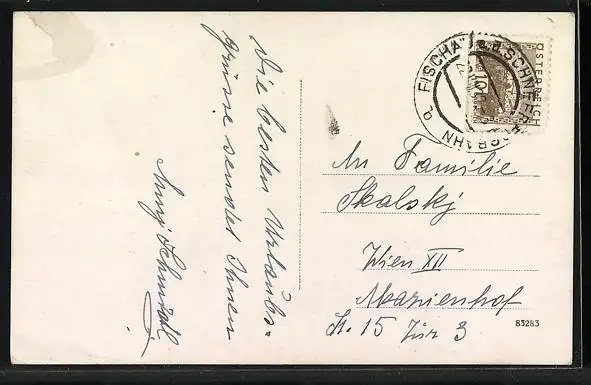 Die besten Urlaubs-
grüsse sendet Ihnen
Schmidl
FISCHA
SCHNEEB
BAHN
ÖSTERREICH
10
An Familie
Skalskj
Wien XII
Marienhof
St. 15 Tür 3
83283